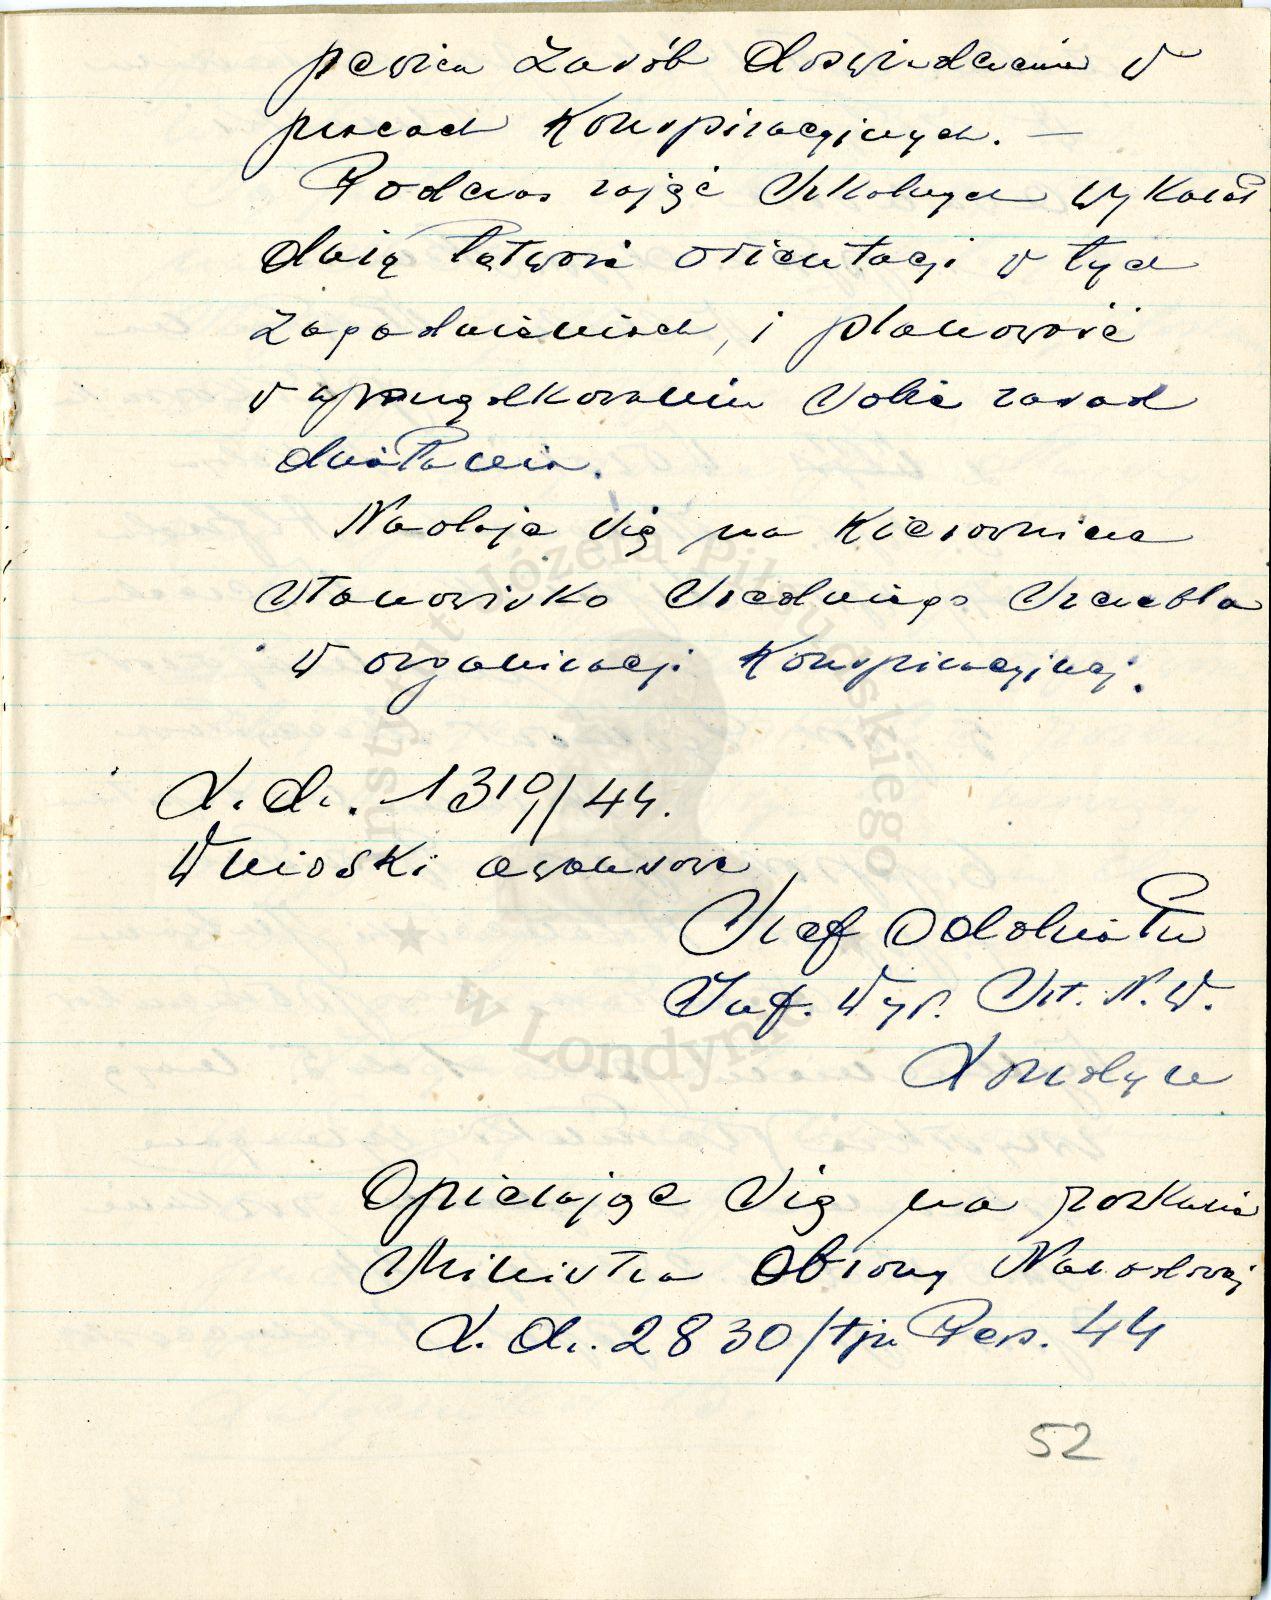 pewien zasób doświadczenia w
pracach Konspiracyjnych. —
Podczas zajęć szkolnych wykazał
dużą łatwość orientacji w tych
zagadnieniach, i planowość
w uporządkowaniu sobie zasad
działania.
Nadaje się na kierownicze
stanowisko średniego szczebla
w organizacji Konspiracyjnej.
L. dz. 1310/44.
Wnioski awansowe
Szef Oddziału
Inf. Wyw. Szt. N. W.
Londyn
Opierając się na rozkazie
Ministra Obrony Narodowej
L. dz. 2830/tjn Pers. 44
52
Instytut Józefa Piłsudskiego
w Londynie